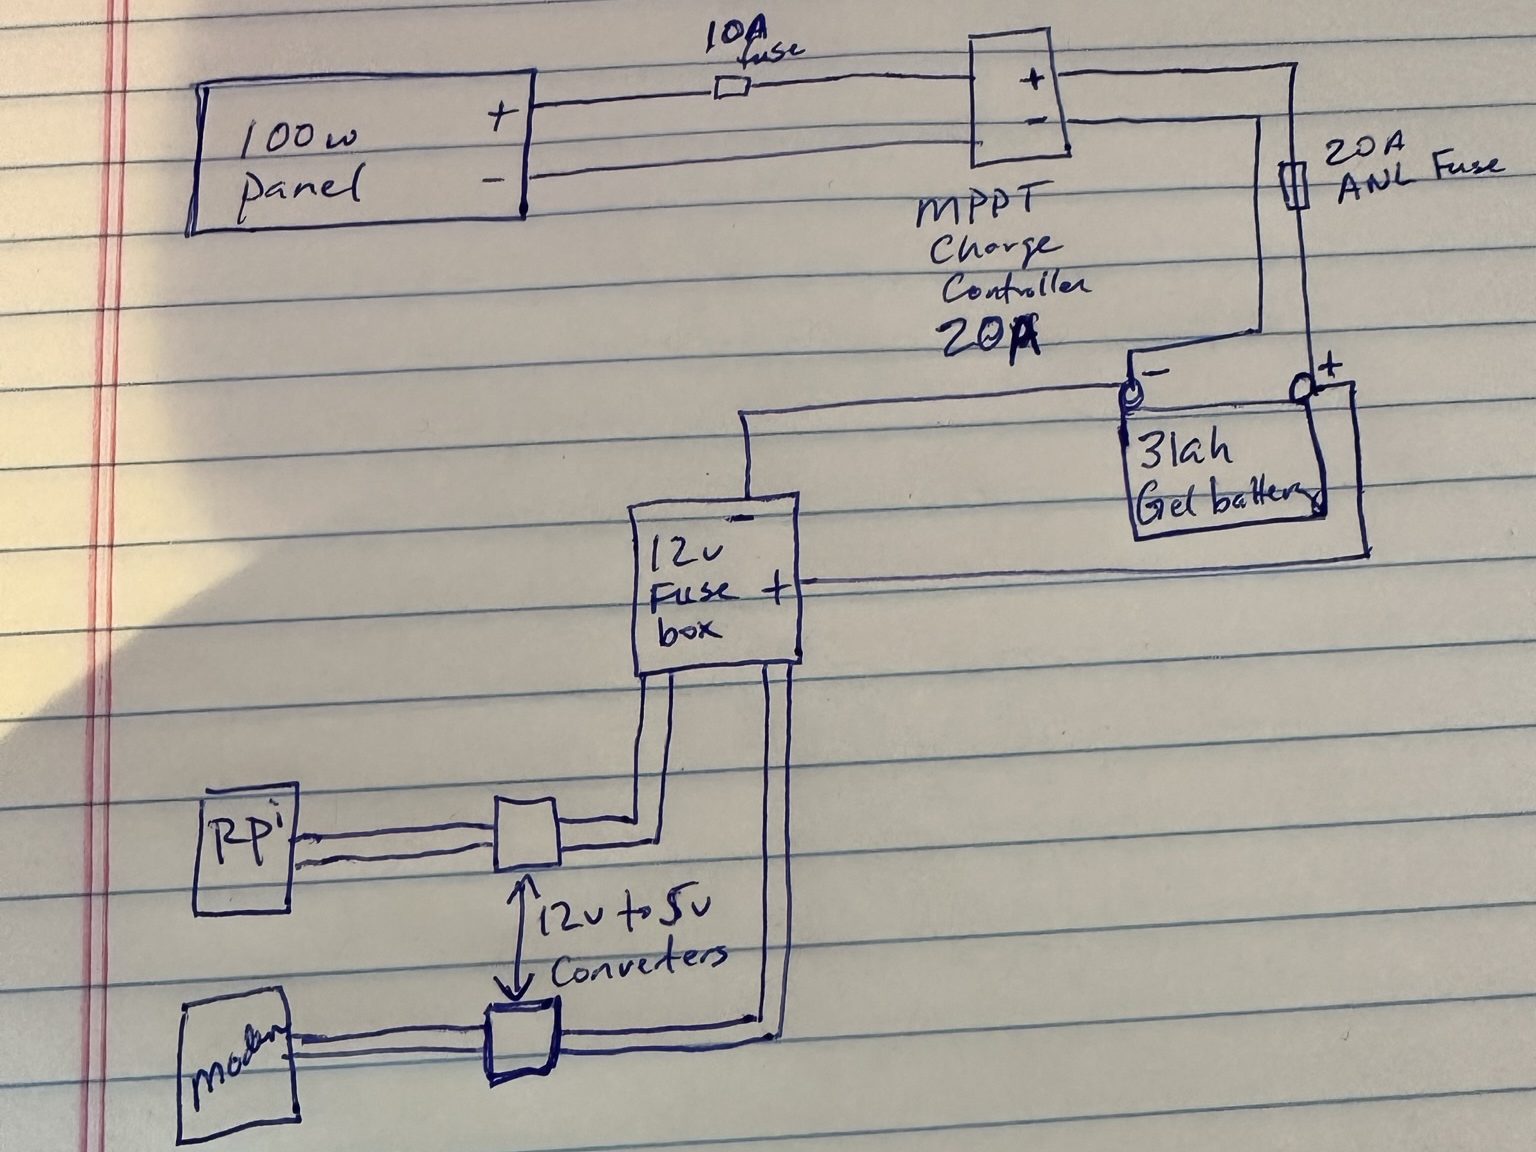 10A
fuse
100w
panel
+
-
+
-
20A
ANL Fuse
MPPT
Charge
Controller
20A
-
+
31ah
Gel battery
-
12v
Fuse +
box
RPi
12v to 5v
Converters
modem